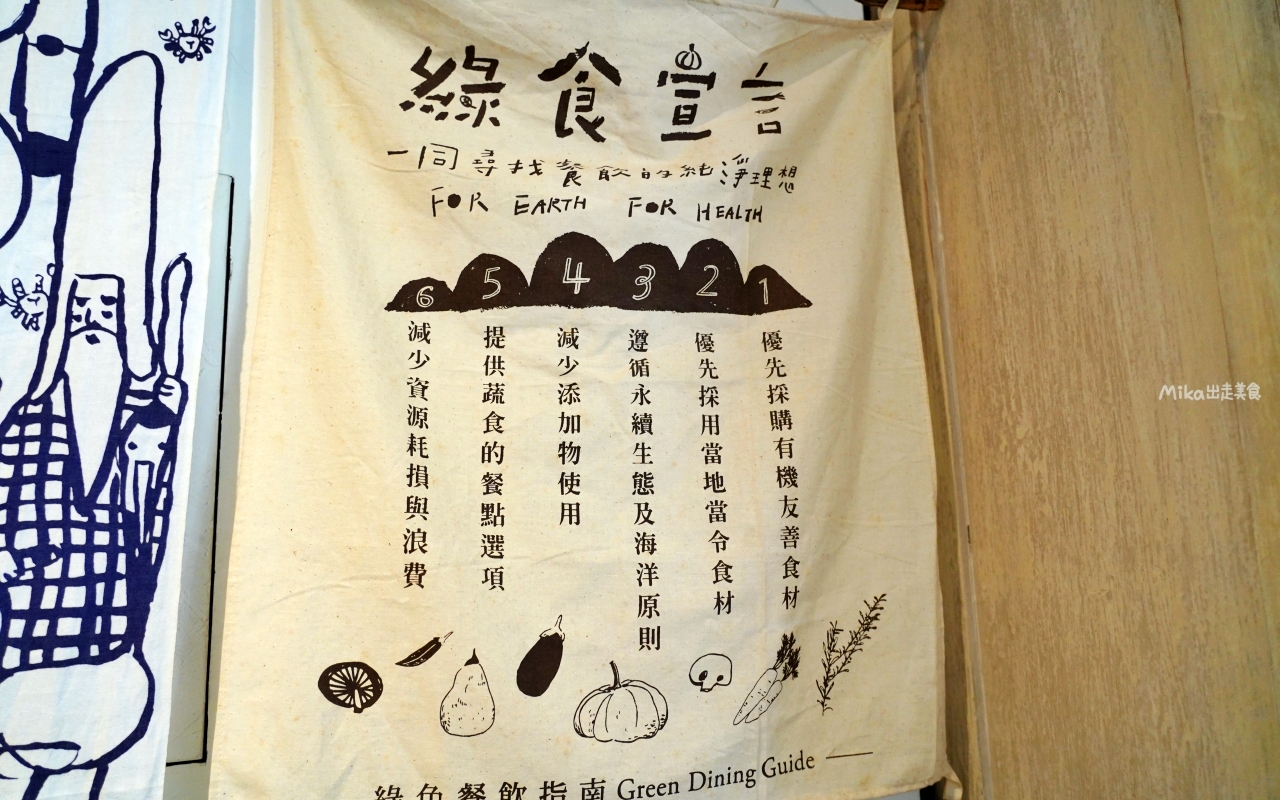 綠食宣言
一同尋找餐飲的純淨理想
FOR EARTH FOR HEALTH
1 優先採購有機友善食材
2 優先採用當地當令食材
3 遵循永續生態及海洋原則
4 減少添加物使用
5 提供蔬食的餐點選項
6 減少資源耗損與浪費
綠色餐飲指南 Green Dining Guide
Mika出走美食